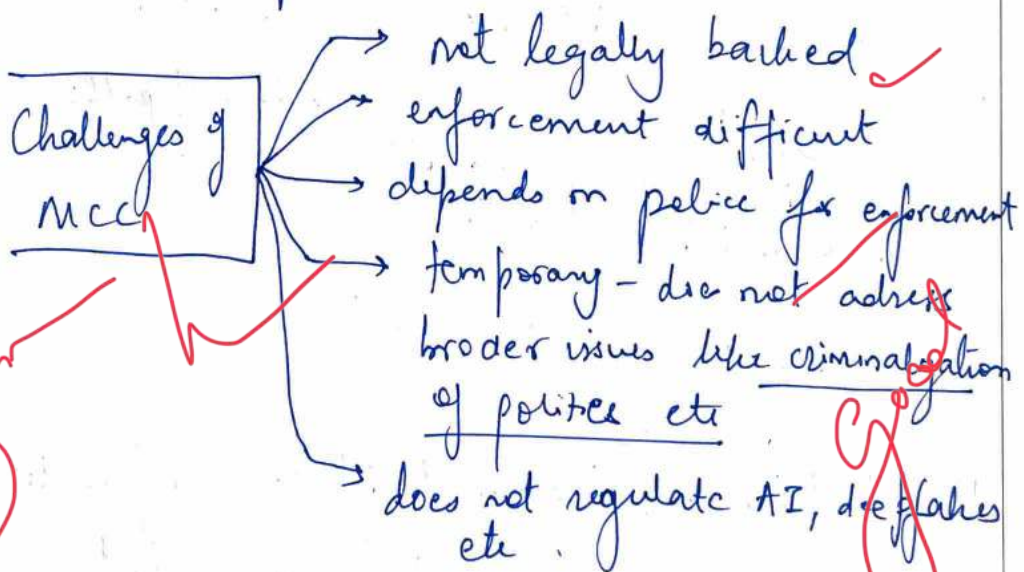 not legally backed
Challenges of
MCC
enforcement difficult
depends on police for enforcement
temporary - doe not adress
broder issues like criminalization
of politics etc
does not regulate AI, deepfakes
etc.
Good